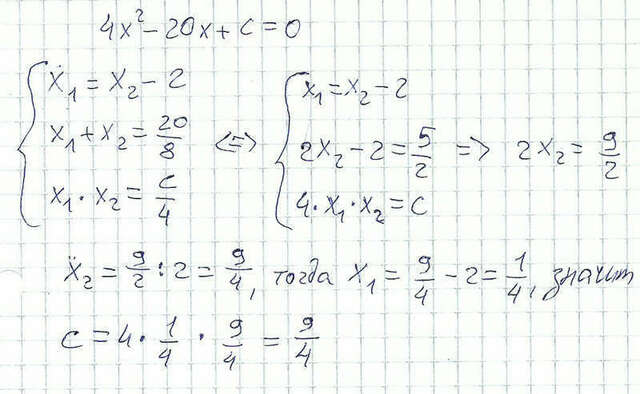 4x² - 20x + c = 0
x₁ = x₂ - 2
x₁ + x₂ = 20/8
x₁ · x₂ = c/4
<=>
x₁ = x₂ - 2
2x₂ - 2 = 5/2 => 2x₂ = 9/2
4 · x₁ · x₂ = c
x₂ = 9/2 : 2 = 9/4, тогда x₁ = 9/4 - 2 = 1/4, значит
c = 4 · 1/4 · 9/4 = 9/4